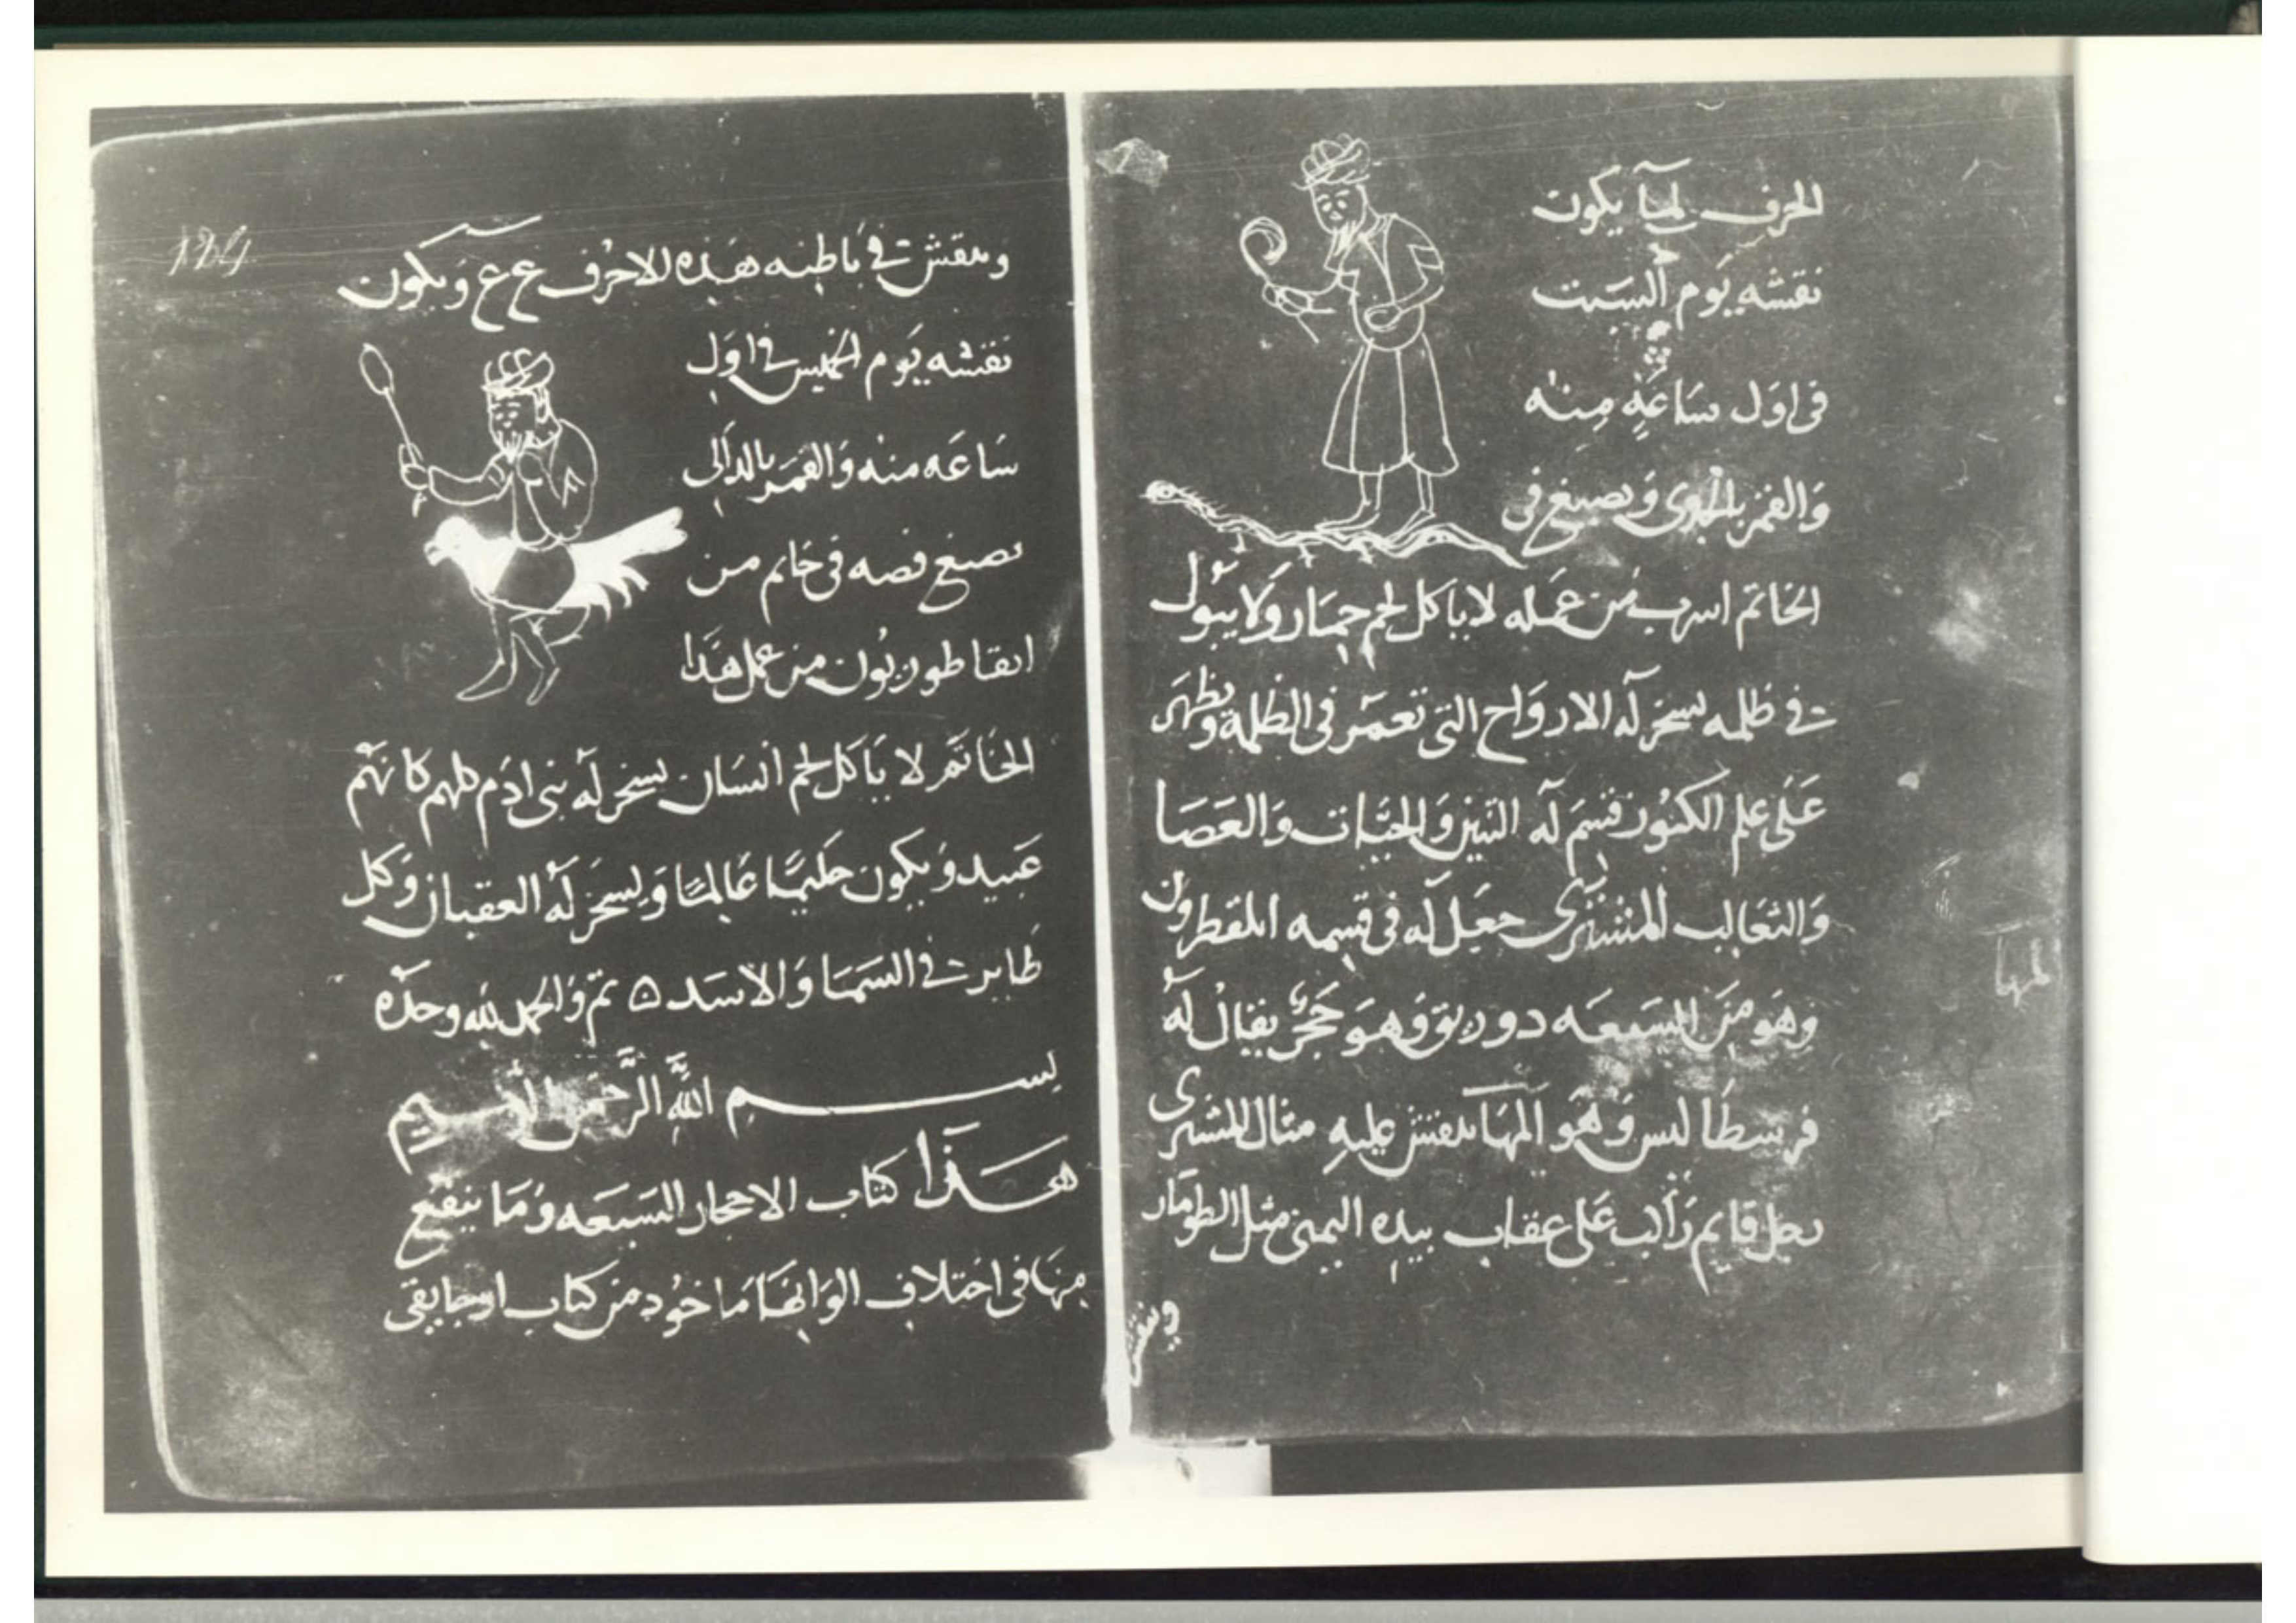 الحرف لهيا يكون
نقشه يوم السبت
فى اول ساعة منه
والقمر بالجدى ويصبغ فى
الخاتم اسرب من عمله لا ياكل لحم حمار ولا يبول
فى ظلمه يسخر له الارواح التى تعمر فى الظلمة ويظهر
على علم الكنوز قسم له التنين والحيات والعصا
والثعالب المشترى جعل له فى قسمه
وهو من السبعه وهو حجر يقال له
وهو المها ينقش عليه مثال المشترى
رجل قايم راكب على عقاب بيده اليمنى مثل الطومار
وينقش
المها
وينقش فى باطنه هذه الاحرف ع ع ويكون
نقشه يوم الخميس فى اول
ساعه منه والقمر بالدالى
يصبغ فصه فى خاتم من
من عمل هذا
الخاتم لا ياكل لحم انسان يسخر له بنى ادم كلهم كانهم
عبيد ويكون حليما عالما ويسخر له العقبان وكل
طاير فى السما والاسد ۞ تم والحمد لله وحده
بسم الله الرحمن الرحيم
هذا كتاب الاحجار السبعه وما ينقع
منها فى اختلاف الوانها ماخود من كتاب